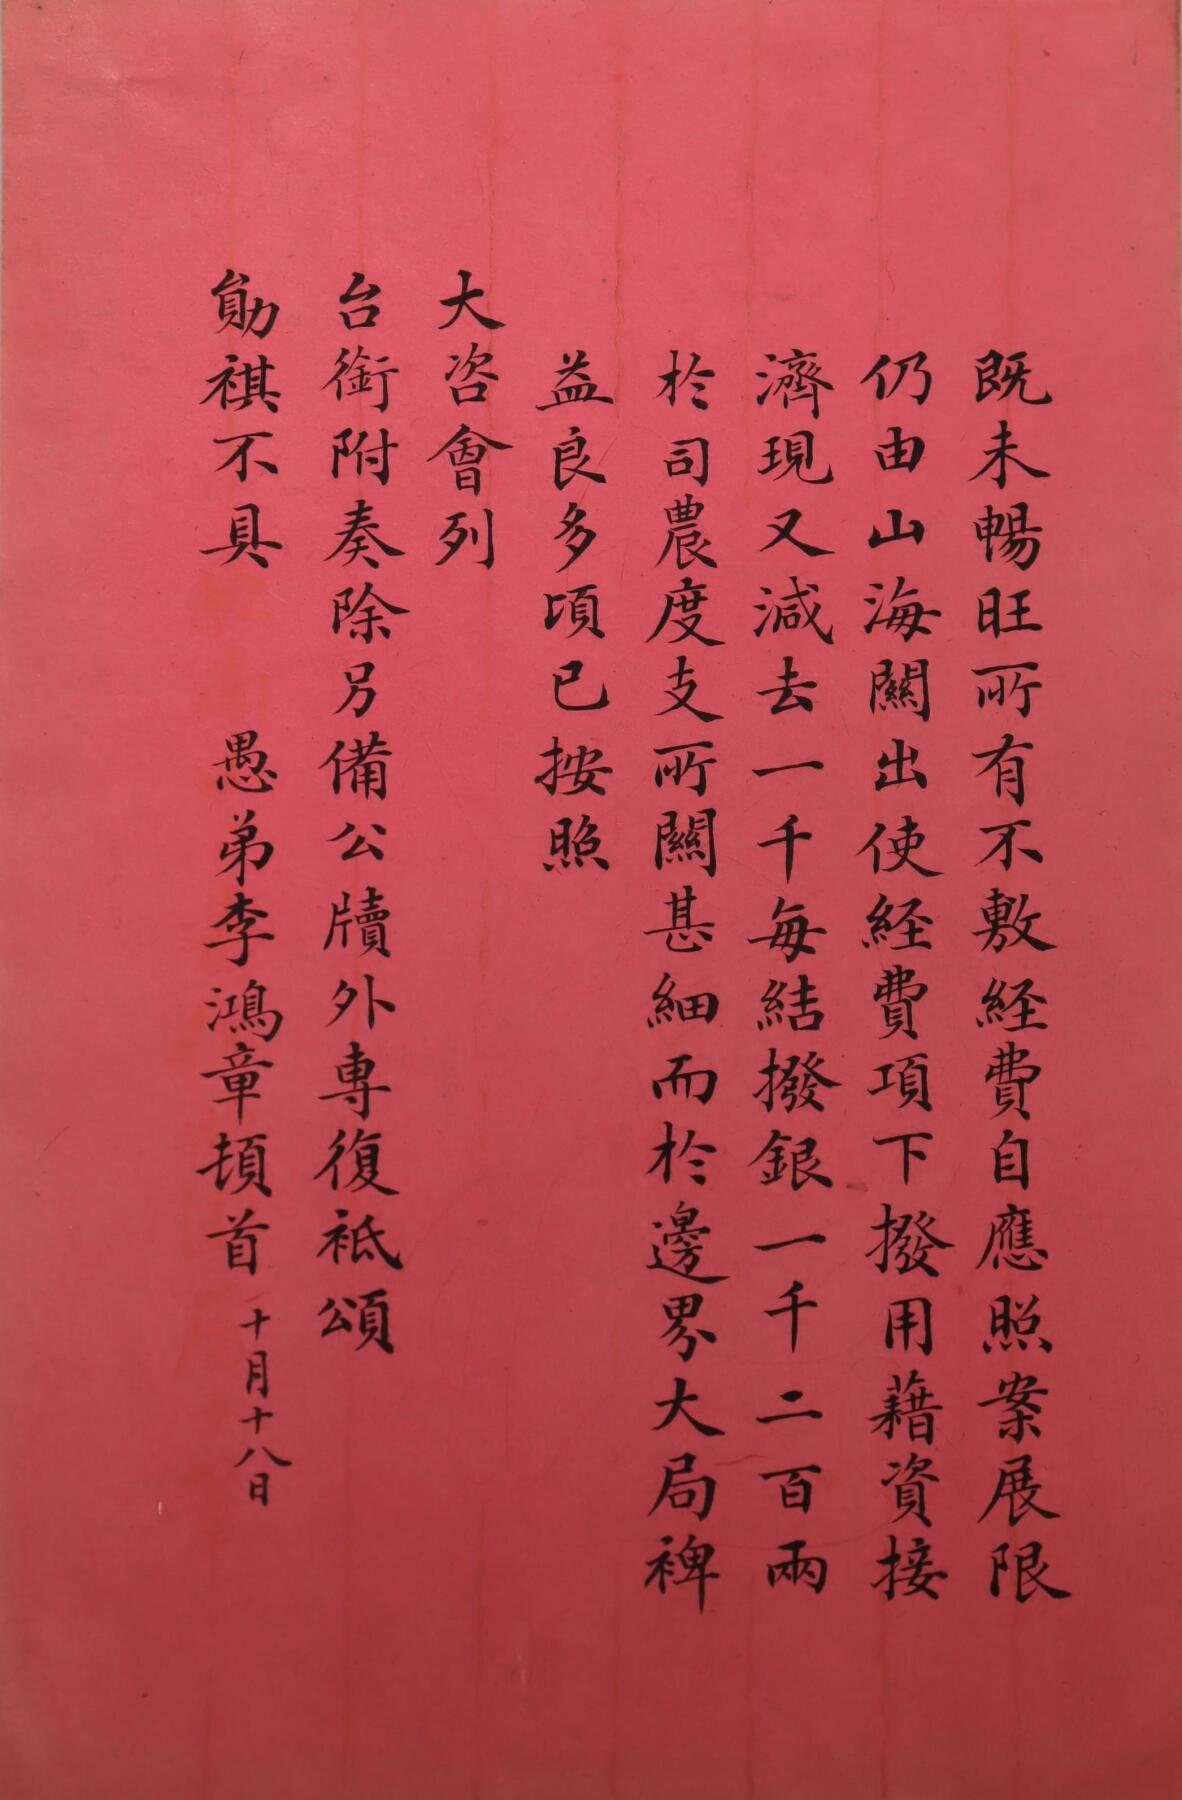 既未暢旺所有不敷経費自應照案展限
仍由山海關出使経費項下撥用藉資接
濟現又減去一千每結撥銀一千二百兩
於司農度支所關甚細而於邊界大局裨
益良多頃已按照
大咨會列
台銜附奏除另備公牘外專復祗頌
勛祺不具 愚弟李鴻章頓首 十月十八日